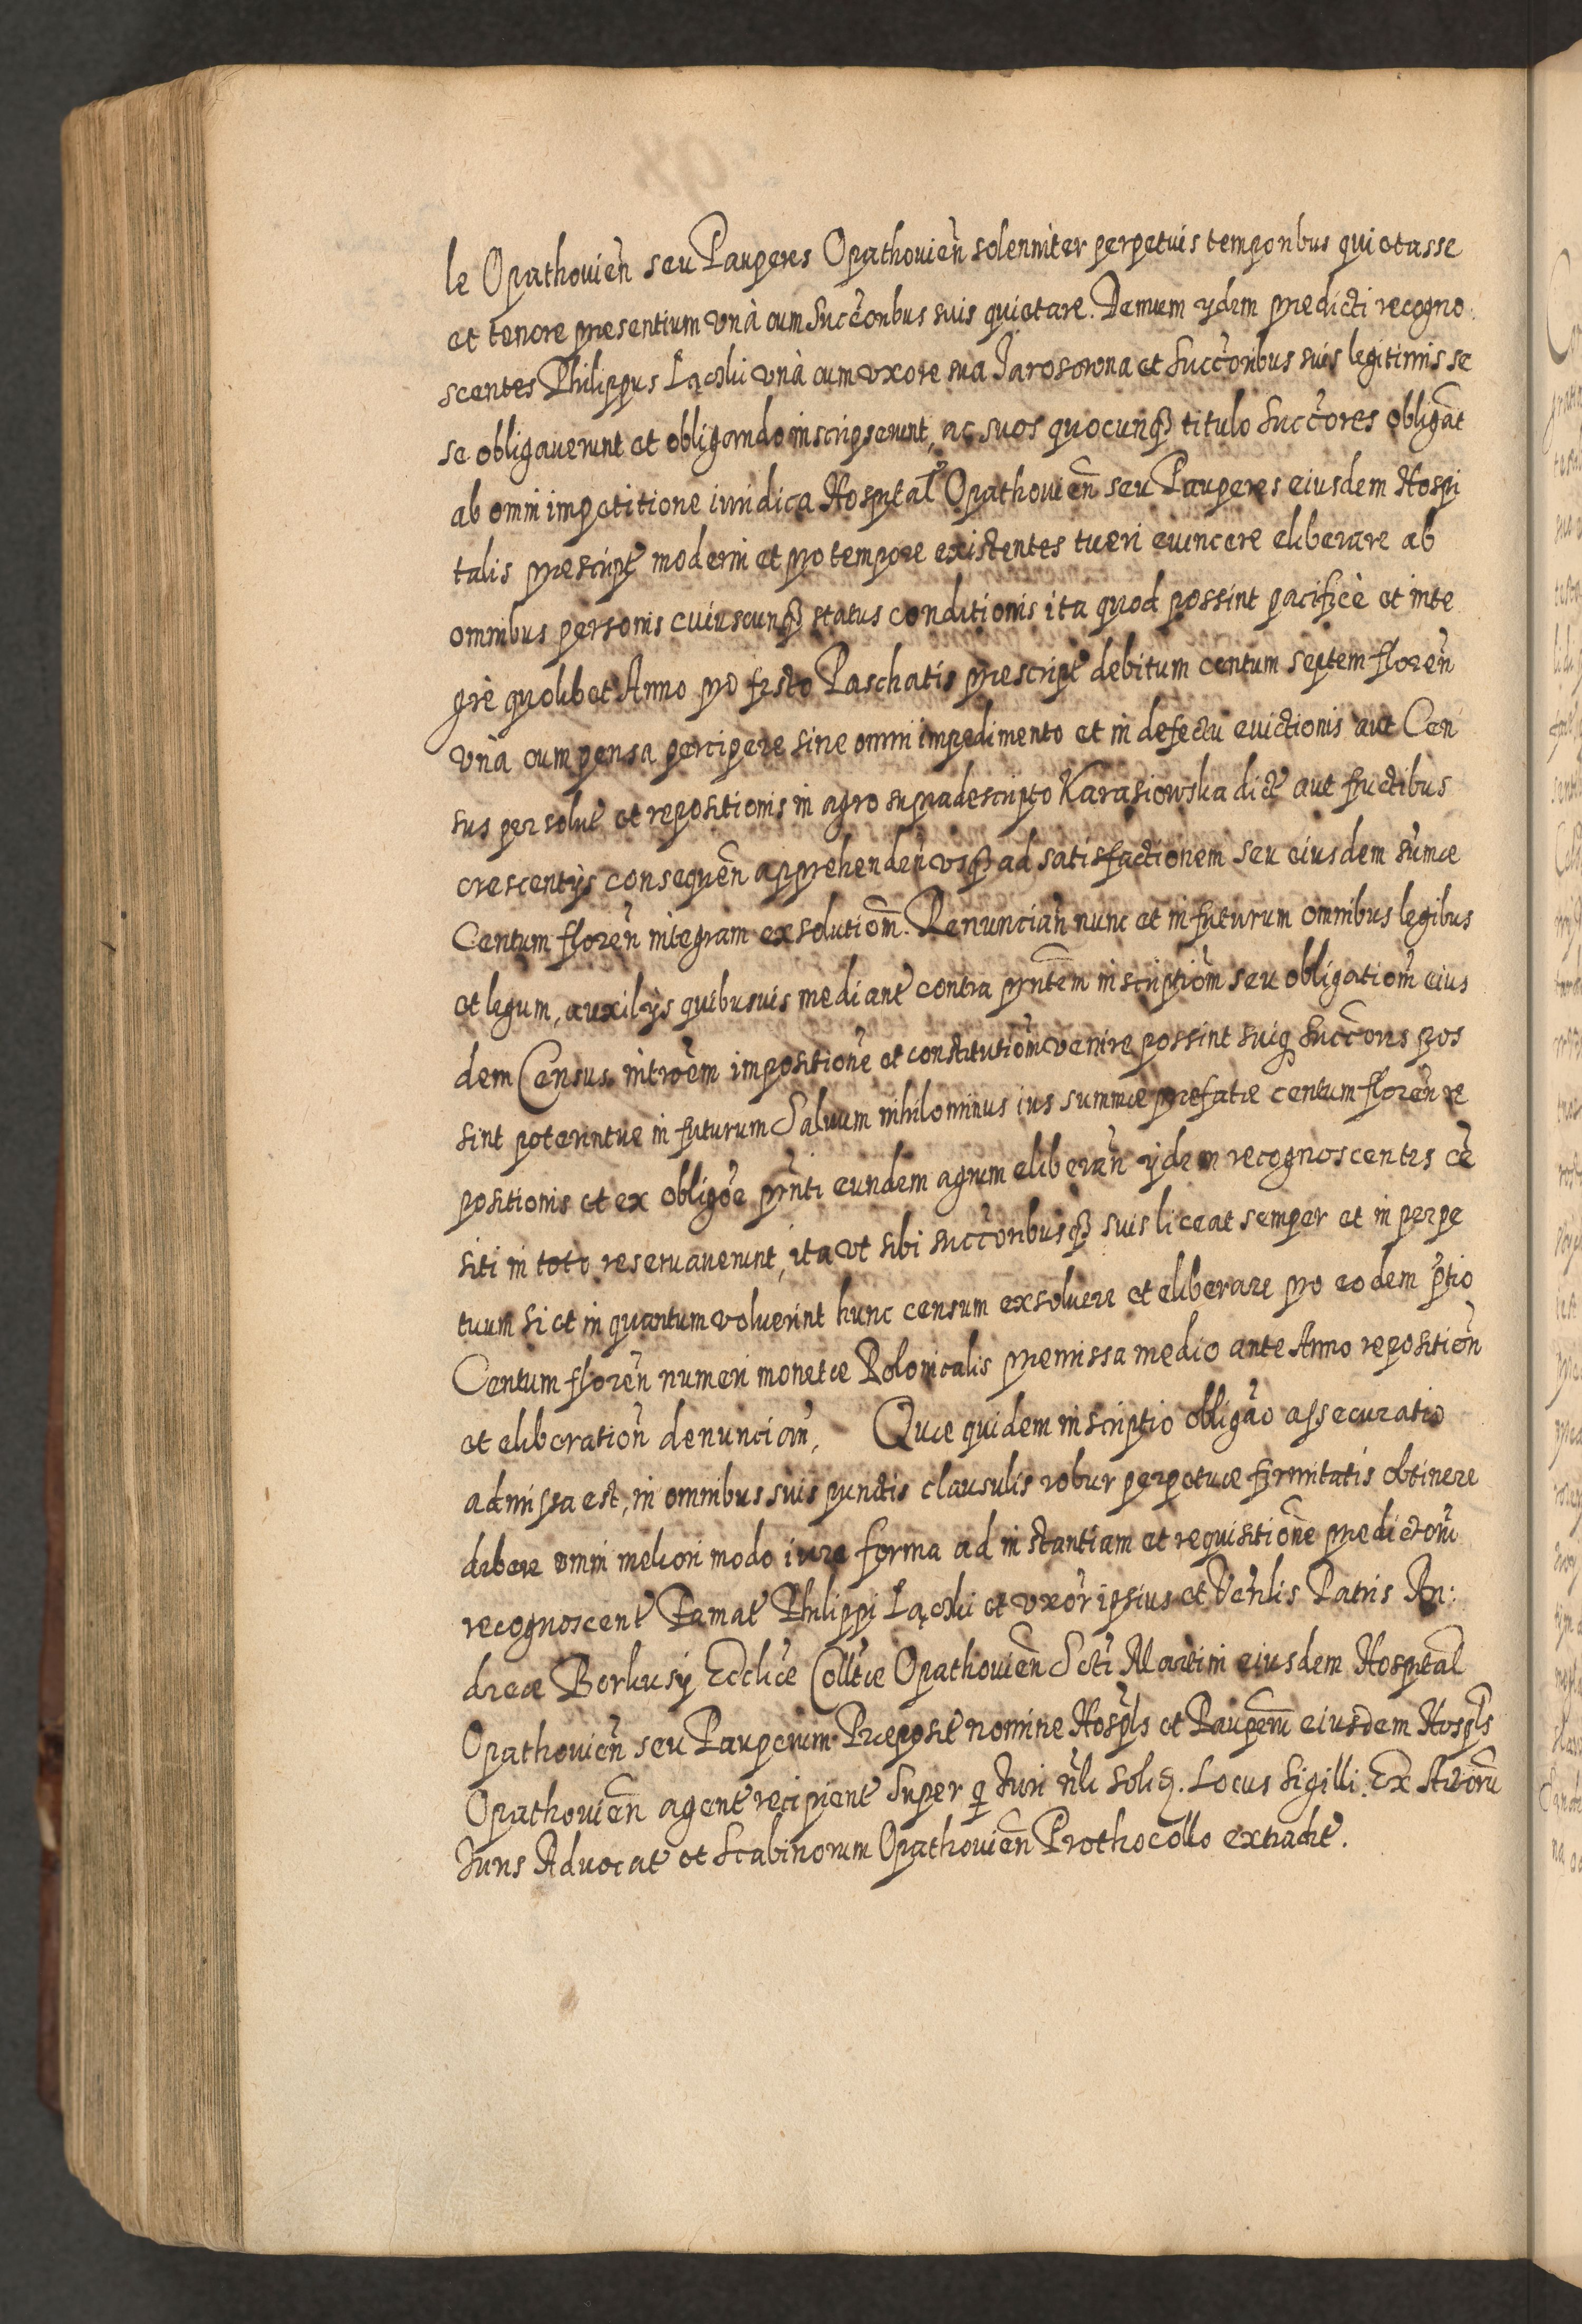 le Opathovień seu Pauperes Opathovień solenniter perpetuis temporibus quietasse
et tenore presentium unà cum Succ̃oribus suis quietare. Demum ydem predicti recogno:
scentes Philippus Łącki unà cum uxore sua Jarosowna et Succ̃oribus suis legitimis se
se obligaverunt et obligando inscripserunt, ac suos quocunq̃ titulo Succ̃ores obligãt
ab omni impetitione iuridica Hospital̃ Opathovień seu Pauperes eiusdem Hospi
talis prescript̃ moderni et pro tempore existentes tueri evincere eliberare ab
omnibus personis cuiuscunq̃ status conditionis ita quod possint pacificè et inte
grè quolibet Anno pro festo Paschatis prescript̃ debitum centum septem floreń
unà cum pensa percipere sine omni impedimento et in defectu evictionis aut Cen
sus persolut̃ et repositionis in agro supradescripto Karasiowska dict̃ aut fructibus
crescentijs consequeñ apprehendeń usq̃ ad satisfactionem seu eiusdem sum̃æ
Centum floreń integram exsolutiom̃. Renunciań nunc et in futurum omnibus legibus
et legum, auxilijs quibusvis mediant̃ contra prñtem inscriptiom̃ seu obligatiom̃ eius
dem Census introem̃ impositione᷉ et constitutiom̃ venire possint suiq̃ Succ̃oris pos
sint poterintve in futurum Salvum nihilominus ius summæ prefatæ centum floreń re
positionis et ex oblig̃oe prñti eundem agrum eliberań ydem recognoscentes cẽ
siti in toto reservaverunt, ita ut sibi succ̃oribusq̃ suis liceat semper et in perpe
tuum si et in quantum voluerint hunc censum exsolvere et eliberare pro eodem p̃tio
Centum floreń numeri monetæ Polonicalis premissa medio ante Anno repositioñ
et eliberatioñ denunciań, Quæ quidem inscriptio obligãо assecuratio
admissa est, in omnibus suis punctis clausulis robur perpetuæ firmitatis obtinere
debere omni meliori modo iure forma ad instantiam et requisitionẽ predictorũ
recognoscent̃ Famat̃ Philippi Łącki et uxor̃ ipsius et Veñlis Patris An:
dreæ Borkusÿ Ecc̃liæ Coll̃tæ Opathovień Scti Martini eiusdem Hospital̃
Opathovień seu Pauperum Præposit̃ nomine Hosp̃ls et Pauperũ eiusdem Hosp̃ls
Opathovień agent̃ recipient̃ Super q Iuri ñli soliq. Locus Sigilli. Ex Actorũ
Iuris Advocat̃ et Scabinorum Opathovień Prothocollo extradit̃.